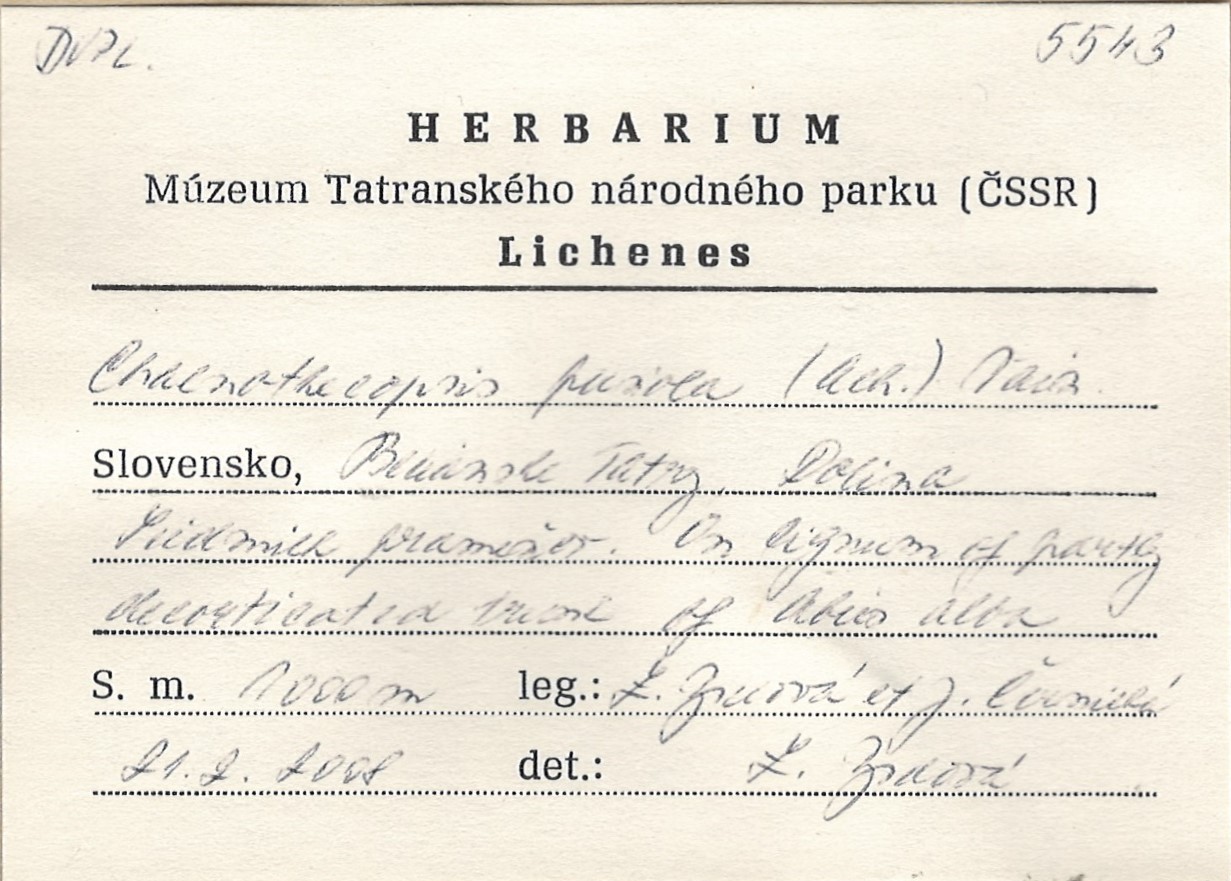 DUPL. 5543
HERBARIUM
Múzeum Tatranského národného parku (ČSSR)
Lichenes
Chaenothecopsis pusiola (Ach.) Vain.
Slovensko, Belianske Tatry, Dolina
Siedmich prameňov. On lignum of partly
decorticated trunk of Abies alba
S. m. 1000 m leg.: et J.
21. 2. 2008 det.: